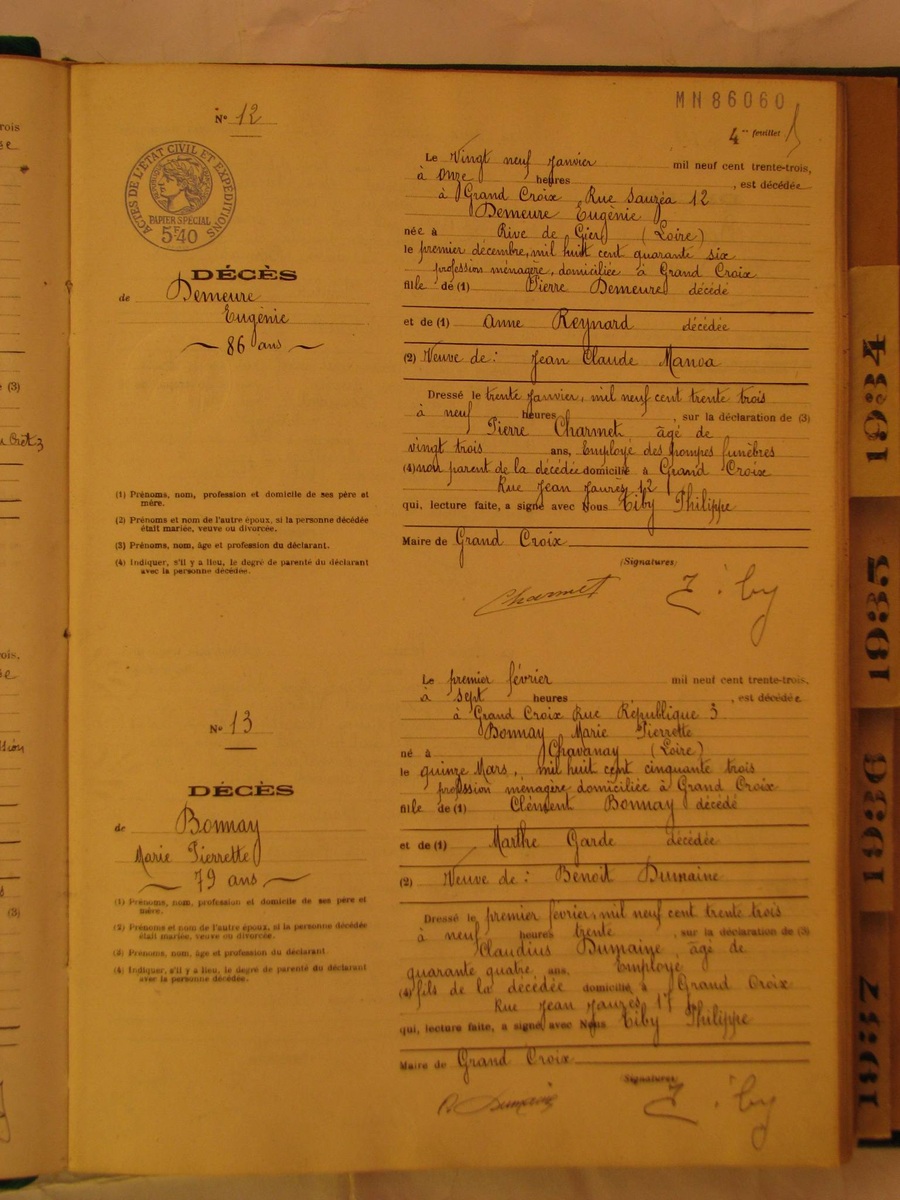 MN86060
4me feuillet
N° 12
ACTES DE L'ETAT CIVIL ET EXPEDITIONS
PAPIER SPÉCIAL
5F40
DÉCÈS
de Demeure
Eugénie
86 ans
(1) Prénoms, nom, profession et domicile de ses père et
mère.
(2) Prénoms et nom de l'autre époux, si la personne décédée
était mariée, veuve ou divorcée.
(3) Prénoms, nom, âge et profession du déclarant.
(4) Indiquer, s'il y a lieu, le degré de parenté du déclarant
avec la personne décédée.
Le Vingt neuf Janvier mil neuf cent trente-trois,
à onze heures , est décédée
à Grand Croix Rue Sauzéa 12
Demeure Eugénie
née à Rive de Gier (Loire)
le premier décembre, mil huit cent quarante six
profession ménagère, domiciliée à Grand Croix
fille de (1) Pierre Demeure décédé
et de (1) Anne Reynard décédée
(2) Veuve de : Jean Claude
Dressé le trente Janvier, mil neuf cent trente trois
à neuf heures , sur la déclaration de (3)
Pierre Charmet âgé de
vingt trois ans, Employé des pompes funèbres
(4) non parent de la décédée domicilié à Grand Croix
Rue Jean Jaurès 12
qui, lecture faite, a signé avec Nous Eiby Philippe
Maire de Grand Croix
(Signatures)
Charmet
N° 13
DÉCÈS
de Bonnay
Marie Pierrette
79 ans
(1) Prénoms, nom, profession et domicile de ses père et
mère.
(2) Prénoms et nom de l'autre époux, si la personne décédée
était mariée, veuve ou divorcée.
(3) Prénoms, nom, âge et profession du déclarant
(4) Indiquer, s'il y a lieu, le degré de parenté du déclarant
avec la personne décédée.
Le premier février mil neuf cent trente-trois.
à sept heures , est décédée
à Grand Croix Rue République 3
Bonnay Marie Pierrette
né à Chavanay (Loire)
le quinze Mars, mil huit cent cinquante trois
profession ménagère domiciliée à Grand Croix
fille de (1) Clément Bonnay décédé
et de (1) Marthe Garde décédée
(2) Veuve de : Benoit Dumaine
Dressé le premier février, mil neuf cent trente trois
à neuf heures trente , sur la déclaration de (3)
Claudius Dumaine âgé de
quarante quatre ans, Employé
(4) fils de la décédée domicilié à Grand Croix
Rue Jean Jaurès 17
qui, lecture faite, a signé avec Nous Eiby Philippe
Maire de Grand Croix
Signatures
Dumaine
1934
1935
1936
1937